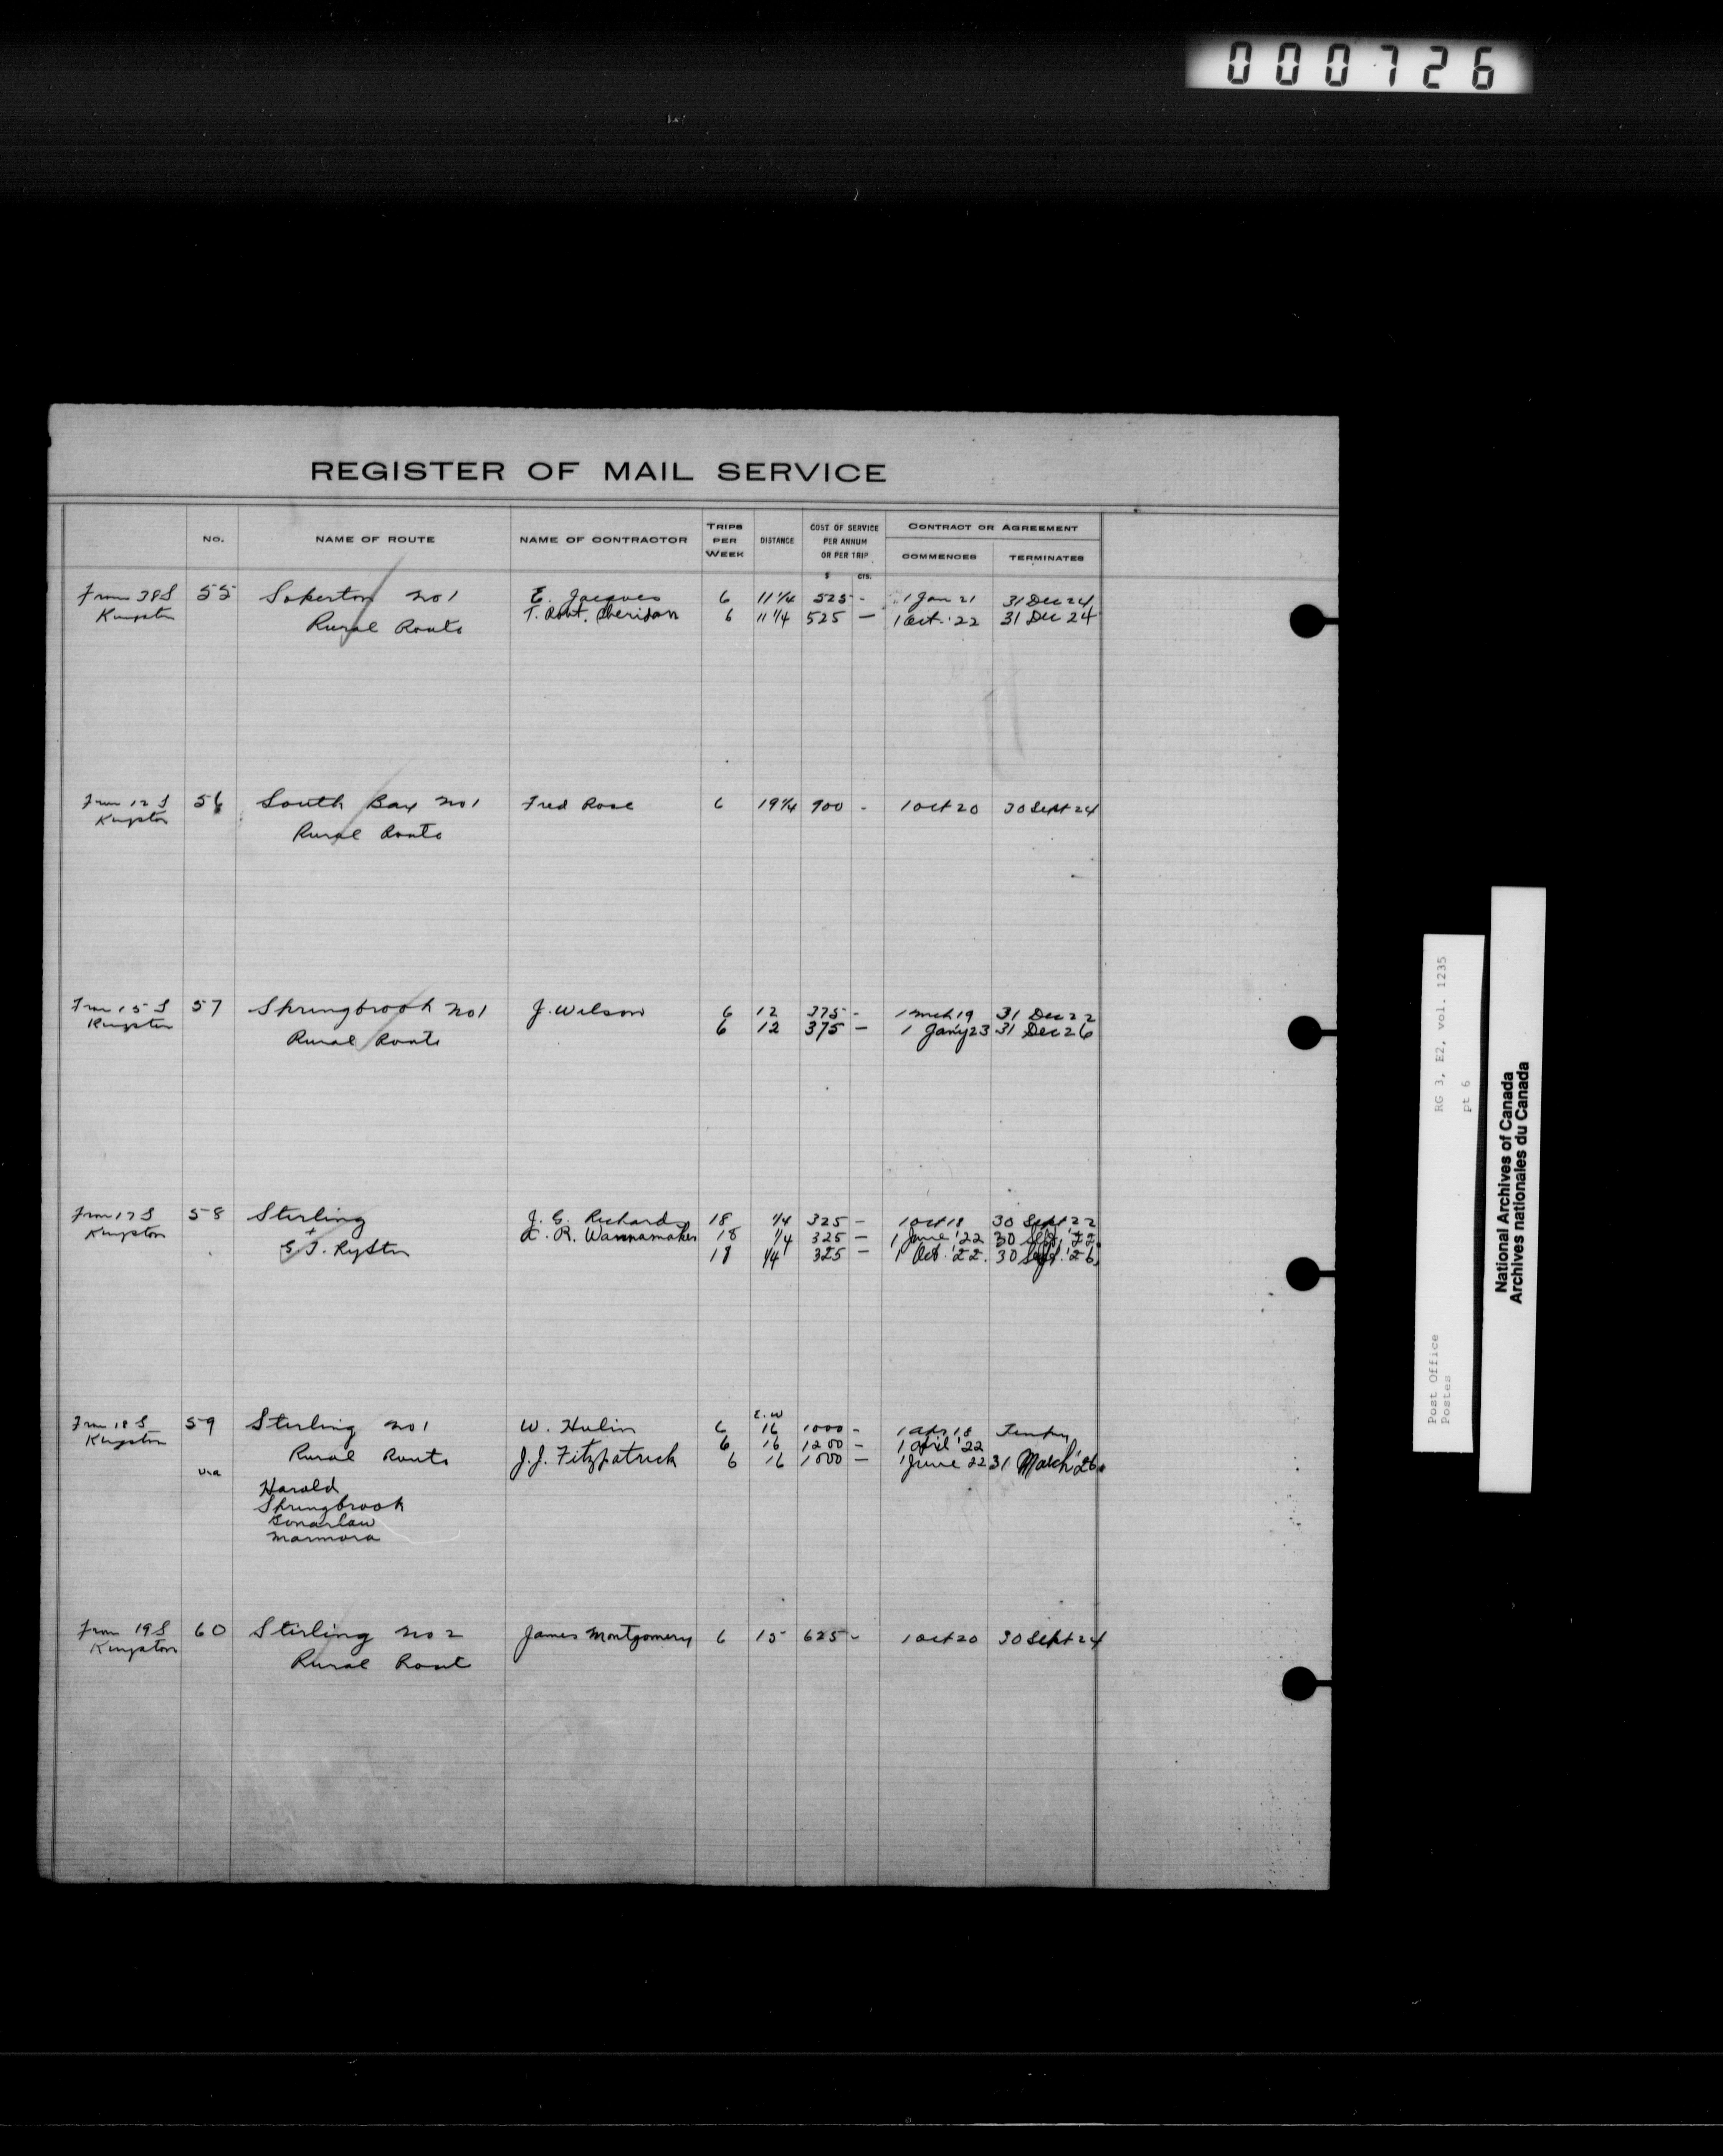 000726
REGISTER OF MAIL SERVICE
No. NAME OF ROUTE NAME OF CONTRACTOR TRIPS PER WEEK DISTANCE COST OF SERVICE PER ANNUM OR PER TRIP CONTRACT OR AGREEMENT
COMMENCES TERMINATES
$ CTS.
From 38 S 55 Soperton No 1 E. Jacques 6 11 1/4 525 - 1 Jan 21 31 Dec 24
Kingston Rural Route T. Robt. Sheridan 6 11 1/4 525 — 1 Oct. '22 31 Dec 24
From 12 S 56 South Bay No 1 Fred Rose 6 19 1/4 900 - 1 Oct 20 30 Sept 24
Kingston Rural Route
From 15 S 57 Springbrook No 1 J. Wilson 6 12 375 - 1 Mch 19 31 Dec 22
Kingston 6 12 375 — 1 Jan'y 23 31 Dec 26
Rural Route
From 17 S 58 Stirling J. G. Richards 18 1/4 325 — 1 Oct 18 30 Sept 22
Kingston + R. Wannamaker 18 1/4 325 — 1 June '22 30 Sept. '22.
G T. Ry Stn 18 1/4 325 — 1 Oct. '22. 30 Sept. '26.
E.W
From 18 S 59 Stirling No 1 W. Hulin 6 16 1000 - 1 Apr 18 Tempy
Kingston 6 16 1200 — 1 April '22
Rural Route J.J. Fitzpatrick 6 16 1000 — 1 June 22 31 March '26.
via
Harold
Springbrook
Bonarlaw
Marmora
From 19 S 60 Stirling No 2 James Montgomery 6 15 625 - 1 Oct 20 30 Sept 24
Kingston Rural Route
Post Office RG 3, E2, vol. 1235
Postes pt 6
National Archives of Canada
Archives nationales du Canada